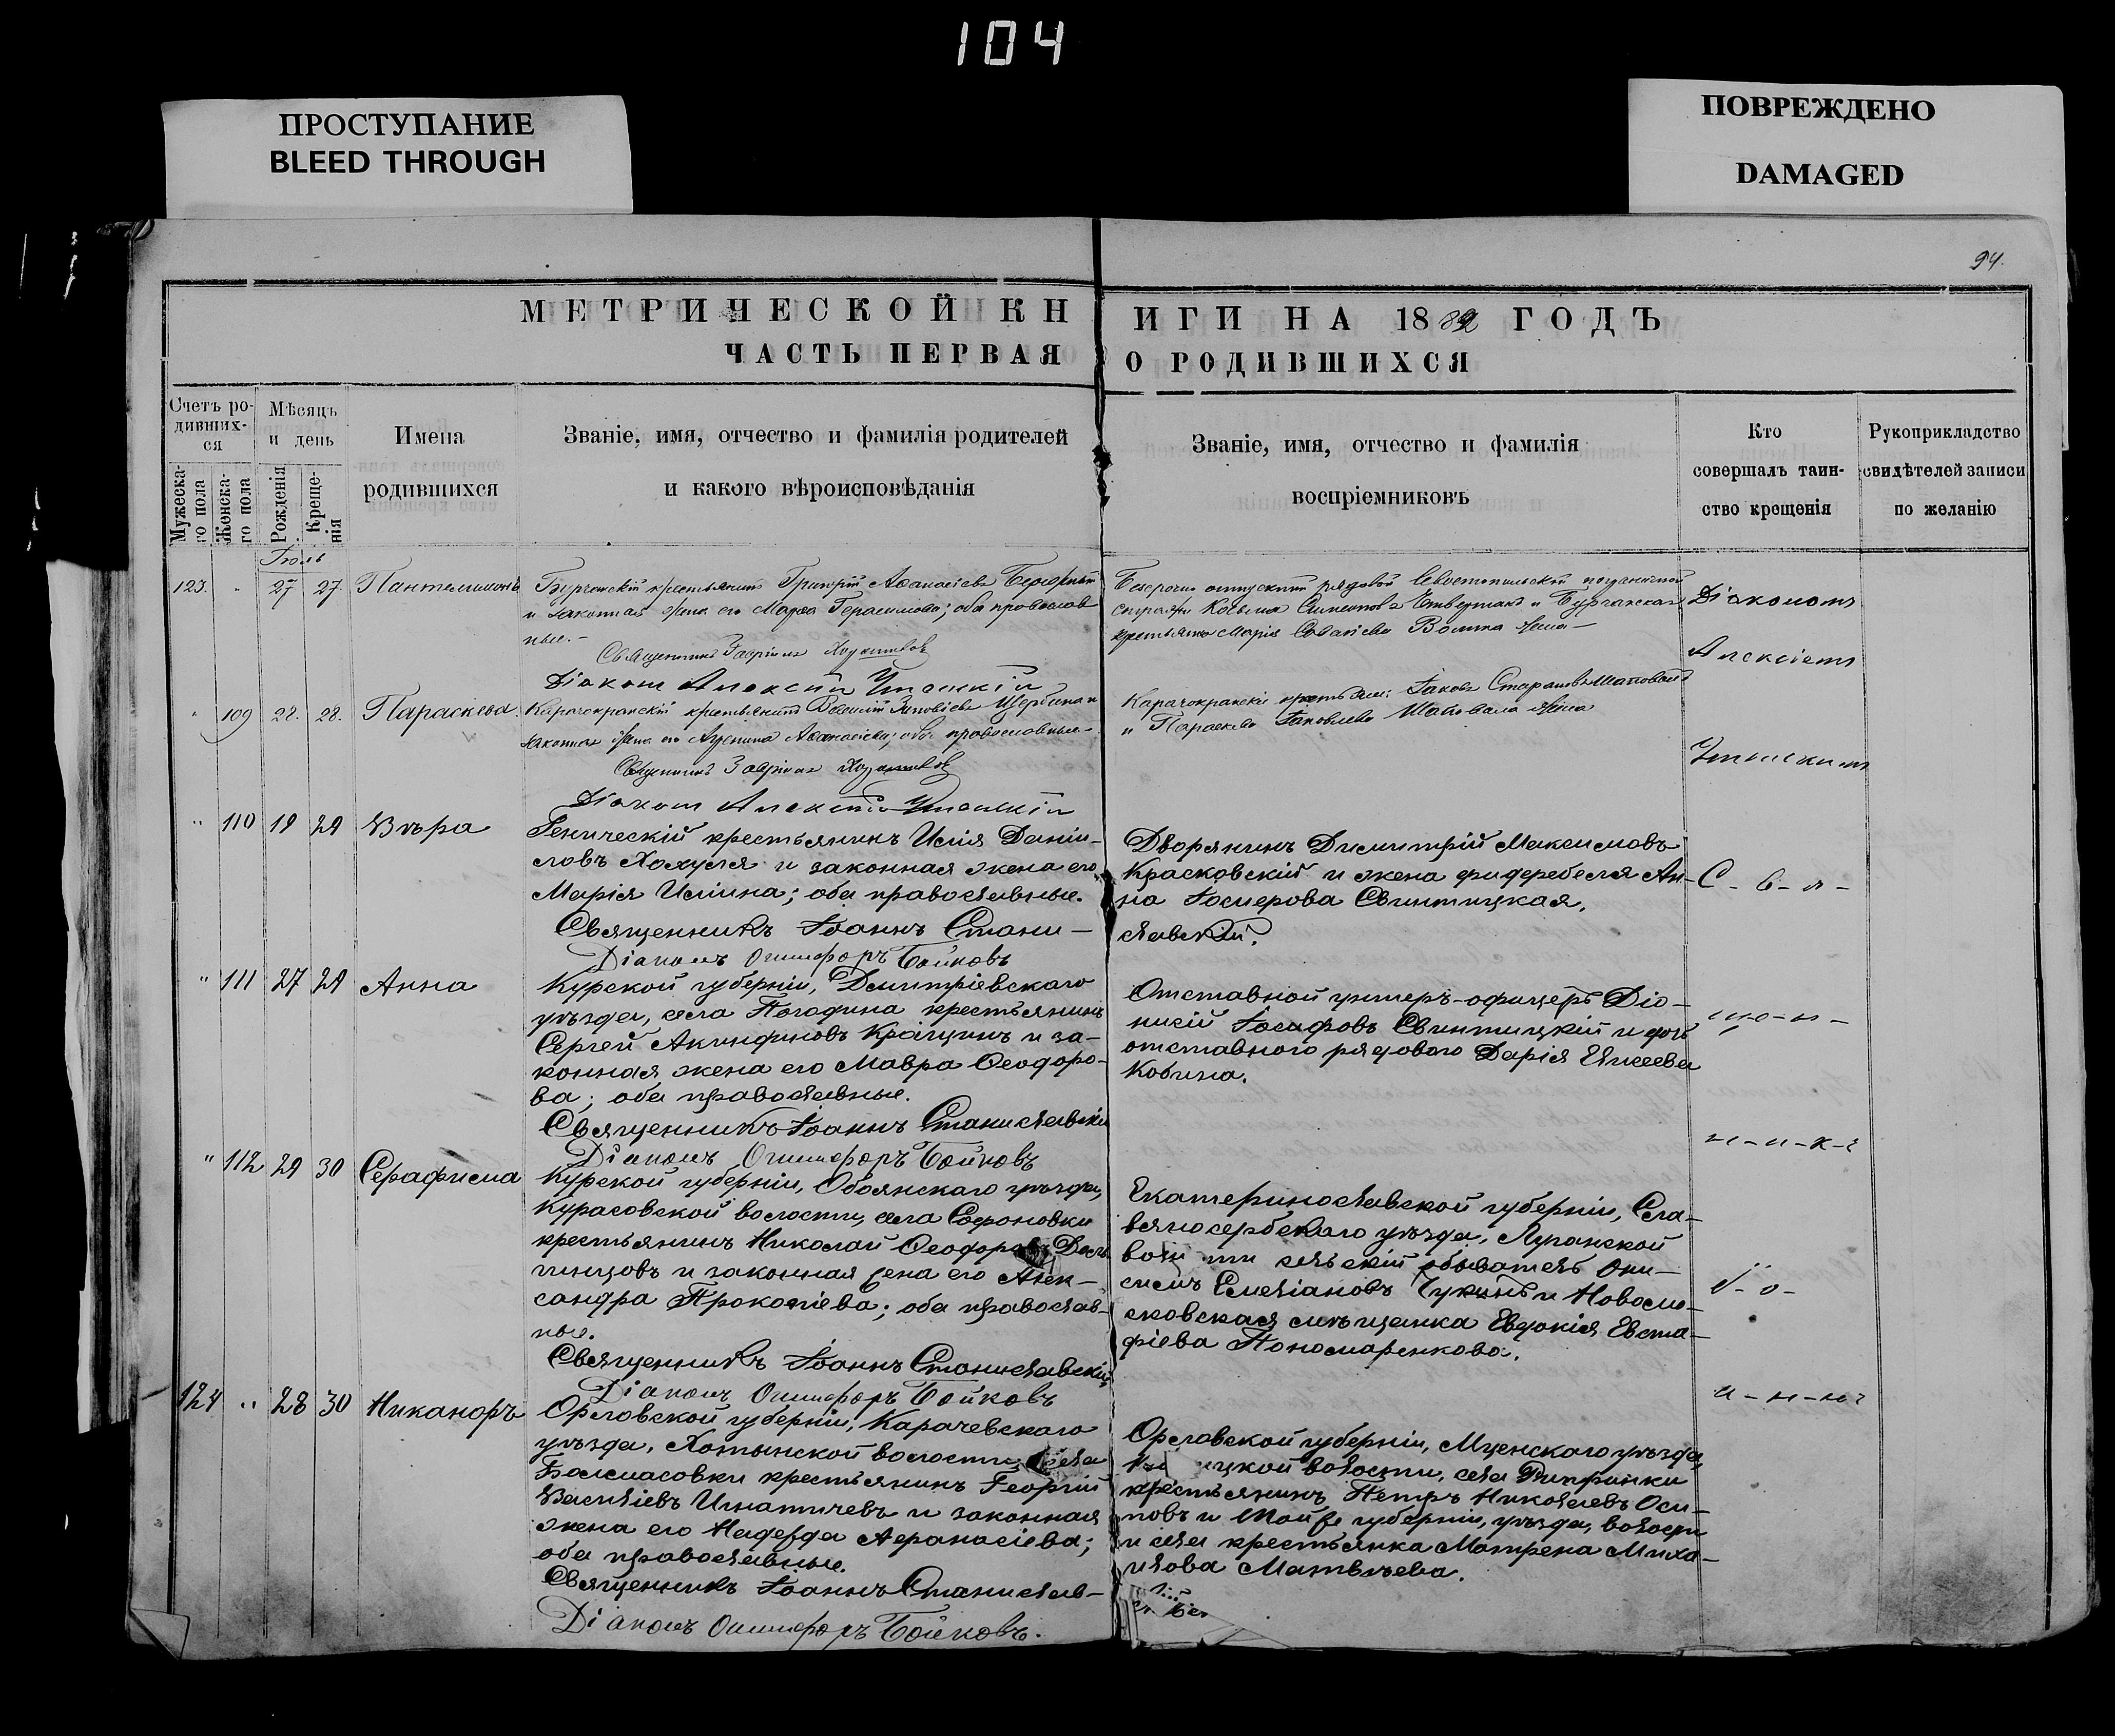 104
ПРОСТУПАНИЕ
BLEED THROUGH
ПОВРЕЖДЕНО
DAMAGED
94.
МЕТРИЧЕСКОЙ КНИГИ НА 1882 ГОДЪ
ЧАСТЬ ПЕРВАЯ О РОДИВШИХСЯ
Счетъ ро-
дивших-
ся
Мужеска-
го пола
Женска-
го пола
Мѣсяцъ
и день
Рожденія
Креще-
нія
Имена
родившихся
Званіе, имя, отчество и фамилія родителей
и какого вѣроисповѣданія
Званіе, имя, отчество и фамилія
воспріемниковъ
Кто
совершалъ таин-
ство крещенія
Рукоприкладство
свидѣтелей записи
по желанію
Іюль
123. " 27 27. Пантелимонъ
крестьянинъ Григорій Аѳанасіевъ
и законная жена его Марѳа Герасимова; оба православ
ные.-
Священникъ Гавріилъ
Діаконъ Алексій
рядовой Севастопольской
Косьма Симеоновъ и
Марія
Діакономъ
Алексіемъ
" 109 28. 28. Параскева.
крестьянинъ Василій Зиновіевъ Щербина и
законная жена его Аѳанасіева; оба православные-
Священникъ Гавріилъ
Діаконъ Алексій
Іаковъ
и Параскева Іаковлева жена
" 110 19 29 Вѣра
Геническій крестьянинъ Илія Даніи-
ловъ Хохуля и законная жена его
Марія Иліина; оба православные.
Священникъ Іоаннъ Стани-
Діаконъ Онисифоръ Бойковъ
Дворянинъ Димитрій Максимовъ
Красковскій и жена фидфебеля Ан-
на Іосиѳова Свинтицкая.
славскій.
С - в - я -
" 111 27 29 Анна
Курской губерніи, Дмитріевскаго
уѣзда, села Погодина крестьянинъ
Сергей Акиндиновъ и за-
конная жена его Мавра Ѳеодоро-
ва; оба православные.
Священникъ Іоаннъ Станиславскій
Діаконъ Онисифоръ Бойковъ
Отставной унтеръ-офицеръ Діо-
нисій Іосифовъ Свинтицкій и дочь
отставного рядового Дарія Елисеева
Кобина.
щ-е-н-
н-и-к-ъ
" 112 29 30 Серафима
Курской губерніи, Обоянскаго уѣзда,
Курасовской волости, села Софоновки
крестьянинъ Николай Ѳеодоровъ
и законная жена его Алек-
сандра Прокопіева; оба православ-
ные.
Священникъ Іоаннъ Станиславскій
Діаконъ Онисифоръ Бойковъ
Екатеринославской губерніи, Сла-
вяносербскаго уѣзда, Луганской
сельскій обыватель Они-
симъ Емеліановъ и Новомо-
сковская мѣщанка Евдокія Евста-
фіева Пономаренкова.
І-о-
а-н-нъ
124 " 28 30 Никаноръ
Орловской губерніи, Карачевскаго
уѣзда, Хотынской волости, села
крестьянинъ Георгій
Василіевъ Игнатичевъ и законная
жена его Надежда Аѳанасіева;
оба православные.
Священникъ Іоаннъ Станислав-
Діаконъ Онисифоръ Бойковъ.
Орловской губерніи, Мценскаго уѣзда,
волости, села
крестьянинъ Петръ Николаевъ Оси-
повъ и той же губерніи, уѣзда, волости
и села крестьянка Матрена Миха-
илова Матвѣева.